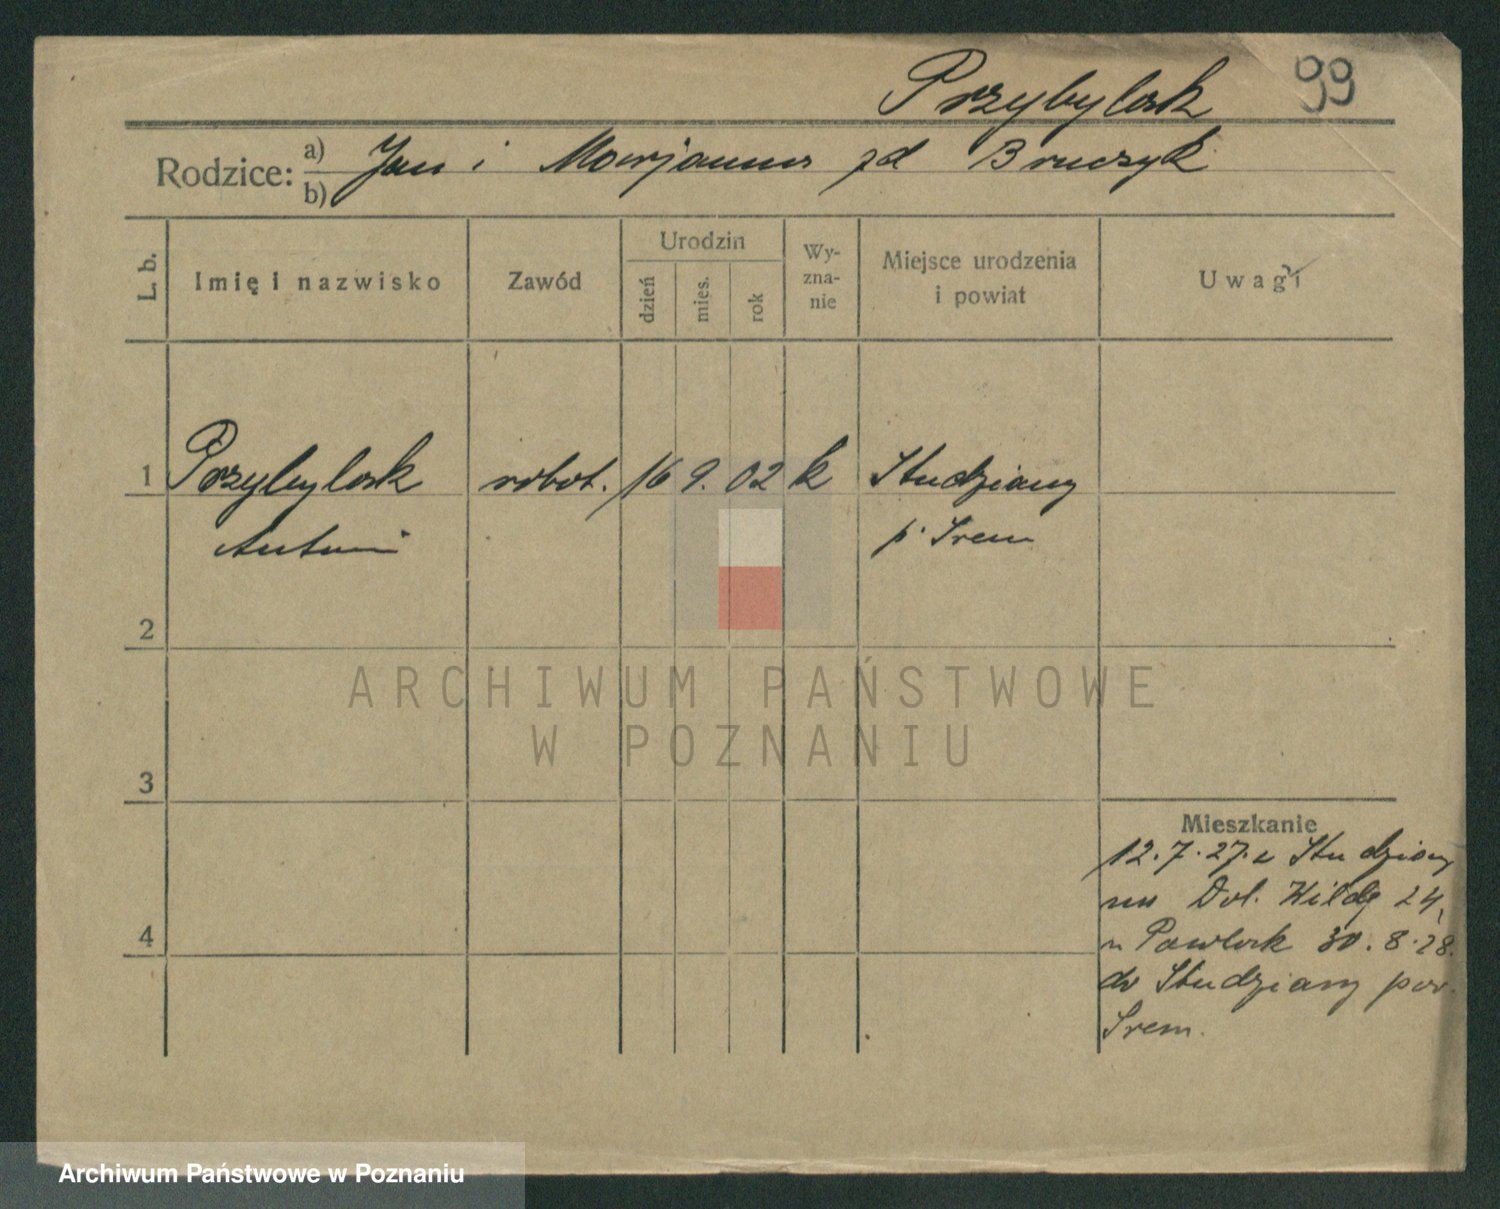 Przybylak 99
Rodzice: a) b) Jan i Marjanna zd Bruczyk
L. b.
Imię i nazwisko
Zawód
Urodzin
dzień
mies.
rok
Wy-
zna-
nie
Miejsce urodzenia
i powiat
Uwagi
1 Przybylak robot. 16 9. 02 k Studziany
Antoni p. Srem
2
3
4
Mieszkanie
12.7.27. z Studziany
na Dol. Wildę 24,
u Pawlak 30.8.28.
do Studziany pow.
Srem.
ARCHIWUM PAŃSTWOWE
W POZNANIU
Archiwum Państwowe w Poznaniu